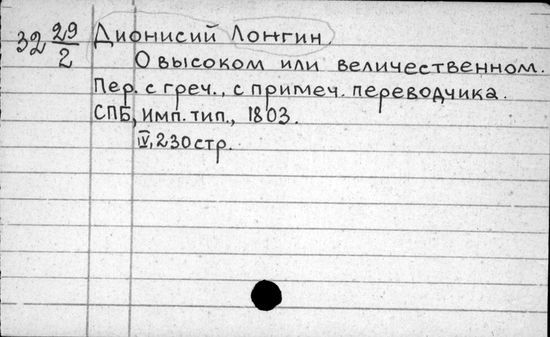 32 29/2 Дионисий Лонгин.
О высоком или величественном.
Пер. с греч., с примеч. переводчика.
СПБ, Имп. тип., 1803.
IV, 230 стр.